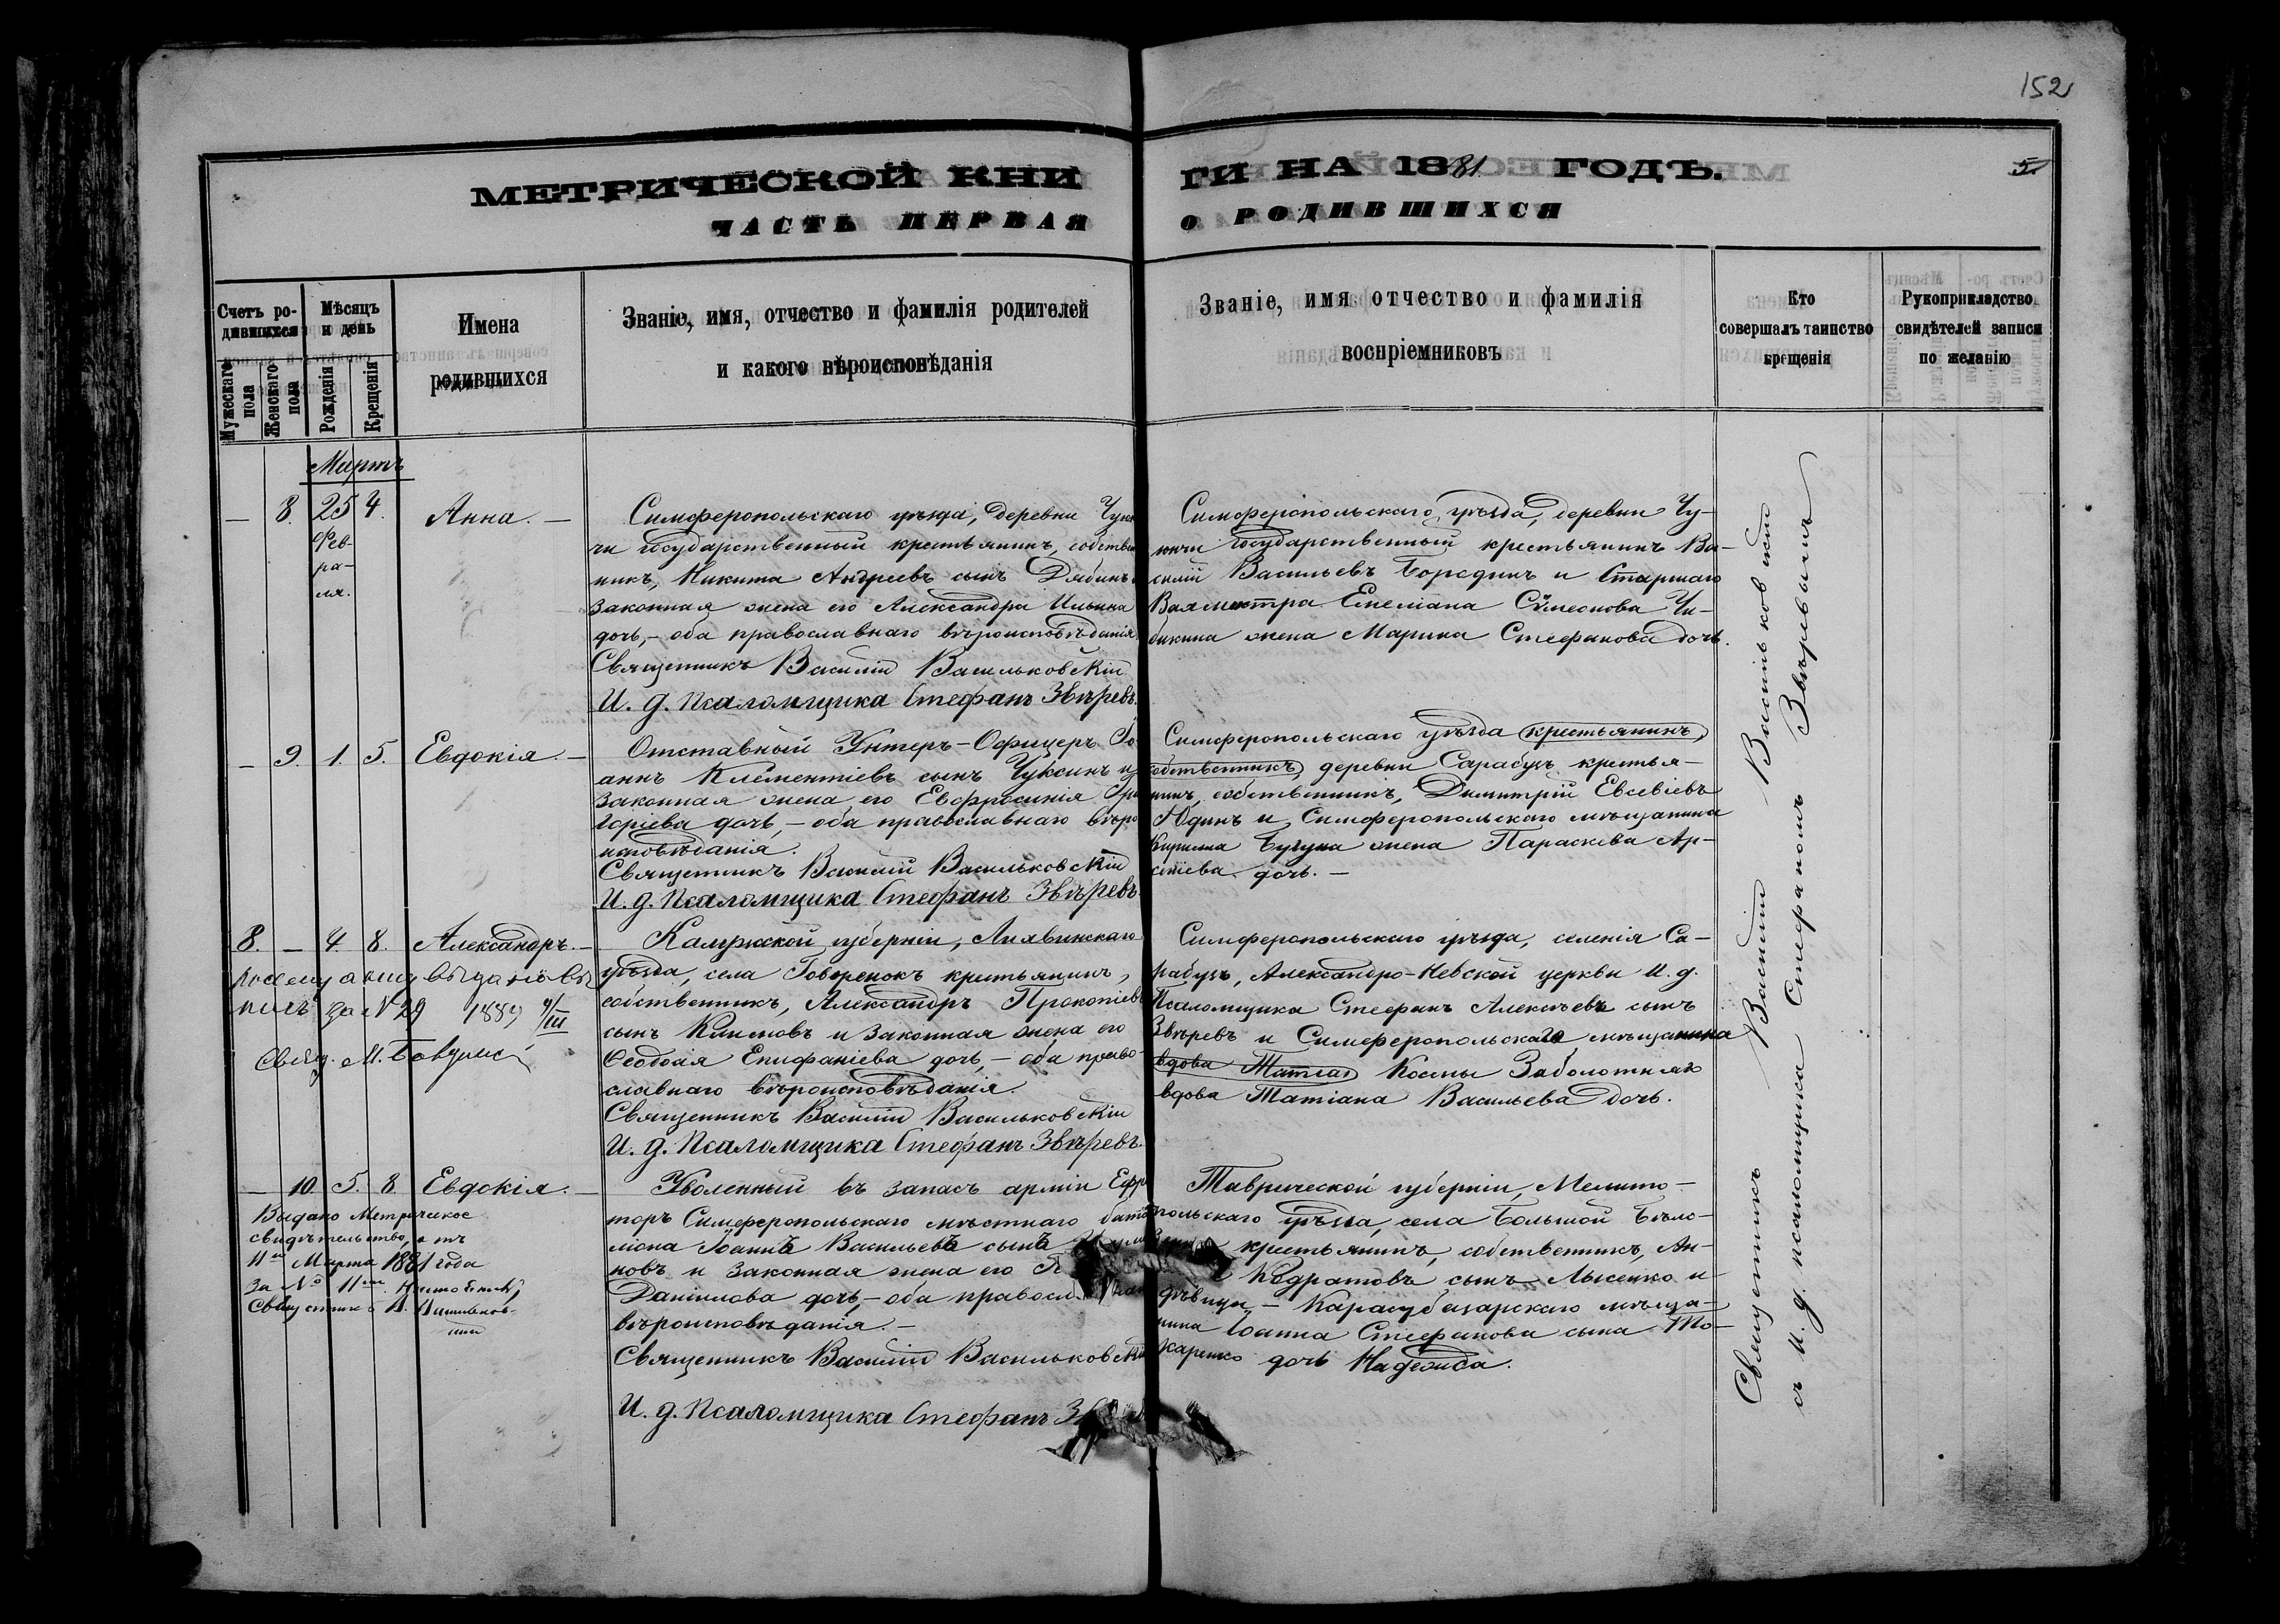 152
МЕТРИЧЕСКОЙ КНИ
ГИ НА 1881 ГОДЪ.
5.
ЧАСТЬ ПЕРВАЯ
О РОДИВШИХСЯ
Счетъ ро-
дившихся
Мужескаго
пола
Женскаго
пола
Мѣсяцъ
и день
Рожденія
Крещенія
Имена
родившихся
Званіе, имя, отчество и фамилія родителей
и какого вѣроисповѣданія
Званіе, имя отчество и фамилія
воспріемниковъ
Кто
совершалъ таинство
крещенія
Рукоприкладство
свидѣтелей записи
по желанію
Мартъ
— 8. 25 4. Анна. —
Фев-
ра-
ля.
Симферопольскаго уѣзда, деревни
чи государственный крестьянинъ,
никъ, Никита Андреевъ сынъ Дябинъ
законная жена его Александра Ильина
дочь, — оба православнаго вѣроисповѣданія.
Священникъ Василій Васильковскій
И. д. Псаломщика Стефанъ Звѣревъ.
Симферопольскаго уѣзда, деревни Чу-
государственный крестьянинъ Ва-
силій Васильевъ Бородинъ и Старшаго
Вахмистра Емеліана Сѵмеонова Чи-
бикина жена Марина Стефанова дочь.
— 9. 1. 5. Евдокія. —
Отставный Унтеръ-Офицеръ Іо
аннъ Климентіевъ сынъ Чуксинъ и
законная жена его Евфросинія Гри
горіева дочь, — оба православнаго вѣро
исповѣданія.
Священникъ Василій Васильковскій
И. д. Псаломщика Стефанъ Звѣревъ.
Симферопольскаго уѣзда крестьянинъ,
собственникъ, деревни Сарабузъ крестья-
нинъ, собственникъ, Димитрій Евсевіевъ
Юдинъ и Симферопольскаго мѣщанина
Кирилла Бугуна жена Параскева Ар-
сеніева дочь. —
8. — 4. 8. Александръ. —
По сему акту
за № 29 1889 9/III
Свящ. М.
Калужской губерніи, Лихвинскаго
уѣзда, села Говоренокъ крестьянинъ,
собственникъ, Александръ Прокопіевъ
сынъ Климовъ и законная жена его
Ѳеодосія Епифаніева дочь, — оба право-
славнаго вѣроисповѣданія.
Священникъ Василій Васильковскій
И. д. Псаломщика Стефанъ Звѣревъ.
Симферопольскаго уѣзда, селенія Са-
рабузъ, Александро-Невской церкви И. д.
Псаломщика Стефанъ Алексѣевъ сынъ
Звѣревъ и Симферопольскаго мѣщанина
вдова Татіа Космы Заболотняго
вдова Татіана Васильева дочь.
— 10 5. 8. Евдокія. —
Выдано Метрическое
свидѣтельство, отъ
11го Марта 1881 года
За № 11мъ
Священникъ В. Васильков-
скій
Уволенный въ запасъ арміи Ефре
торъ Симферопольскаго мѣстнаго бата
ліона Іоаннъ Васильевъ сынъ
новъ и законная жена его
Даніилова дочь, — оба правосл
вѣроисповѣданія. —
Священникъ Василій Васильковскій
И. д. Псаломщика Стефанъ
Таврической губерніи, Мелито-
польскаго уѣзда, села Большой Бѣло-
крестьянинъ, собственникъ, Ан-
Кодратовъ сынъ Лысенко и
дѣвица — Карасубазарскаго мѣща-
нина Іоанна Стефанова сына То-
каренко дочь Надежда.
Священникъ Василій Васильковскій
съ и. д. псаломщика Стефаномъ Звѣревымъ